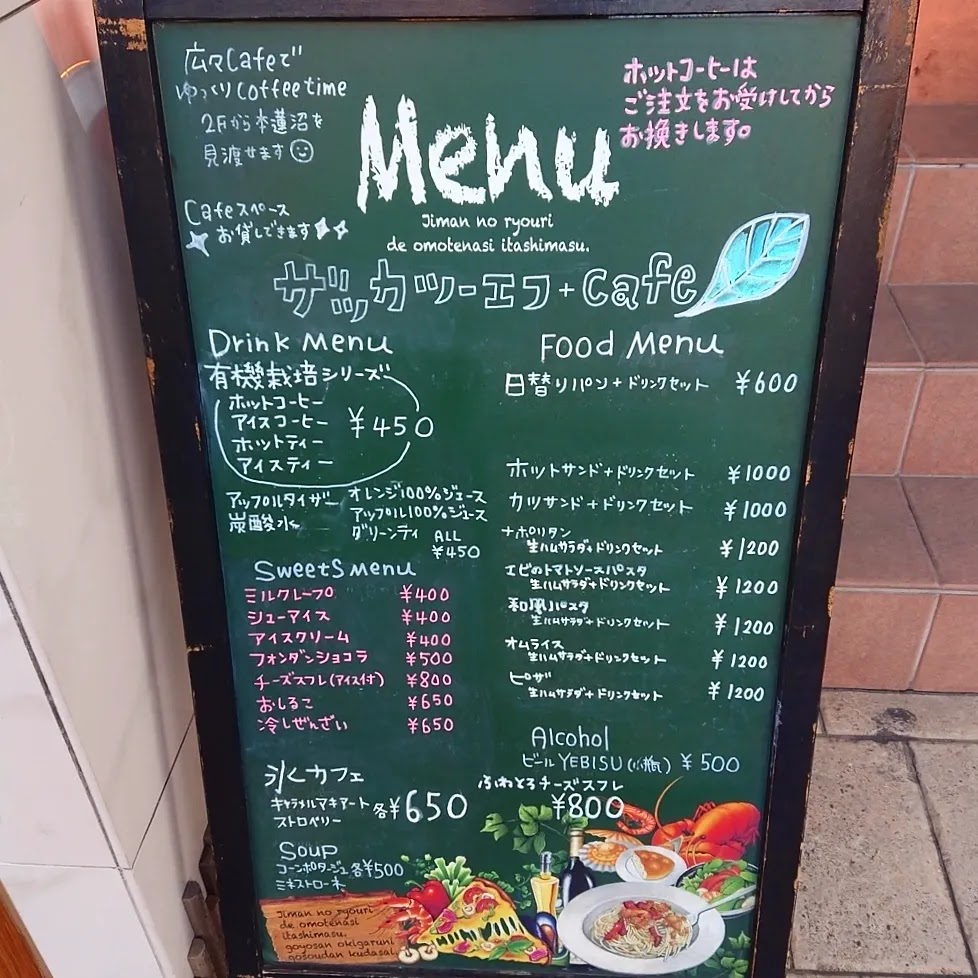 広々Cafeで
ゆっくりcoffee time
2Fから本蓮沼を
見渡せます
Cafeスペース
お貸しできます
ホットコーヒーは
ご注文をお受けしてから
お挽きします。
Menu
Jiman no ryouri
de omotenasi itashimasu.
ザッカツーエフ+cafe
Drink Menu
有機栽培シリーズ
ホットコーヒー
アイスコーヒー ¥450
ホットティー
アイスティー
アップルタイザー オレンジ100%ジュース
炭酸水 アップル100%ジュース
グリーンティ ALL
¥450
Sweets menu
ミルクレープ ¥400
シューアイス ¥400
アイスクリーム ¥400
フォンダンショコラ ¥500
チーズスフレ(アイス付) ¥800
おしるこ ¥650
冷しぜんざい ¥650
氷カフェ
キャラメルマキアート 各¥650
ストロベリー
Soup
コーンポタージュ 各¥500
ミネストローネ
Food Menu
日替りパン+ドリンクセット ¥600
ホットサンド+ドリンクセット ¥1000
カツサンド+ドリンクセット ¥1000
ナポリタン
生ハムサラダ+ドリンクセット ¥1200
エビのトマトソースパスタ
生ハムサラダ+ドリンクセット ¥1200
和風パスタ
生ハムサラダ+ドリンクセット ¥1200
オムライス
生ハムサラダ+ドリンクセット ¥1200
ピザ
生ハムサラダ+ドリンクセット ¥1200
Alcohol
ビール YEBISU(小瓶) ¥500
ふわとろチーズスフレ
¥800
Jiman no ryouri
de omotenasi
itashimasu.
goyosan okigaruni
gosoudan kudasai.